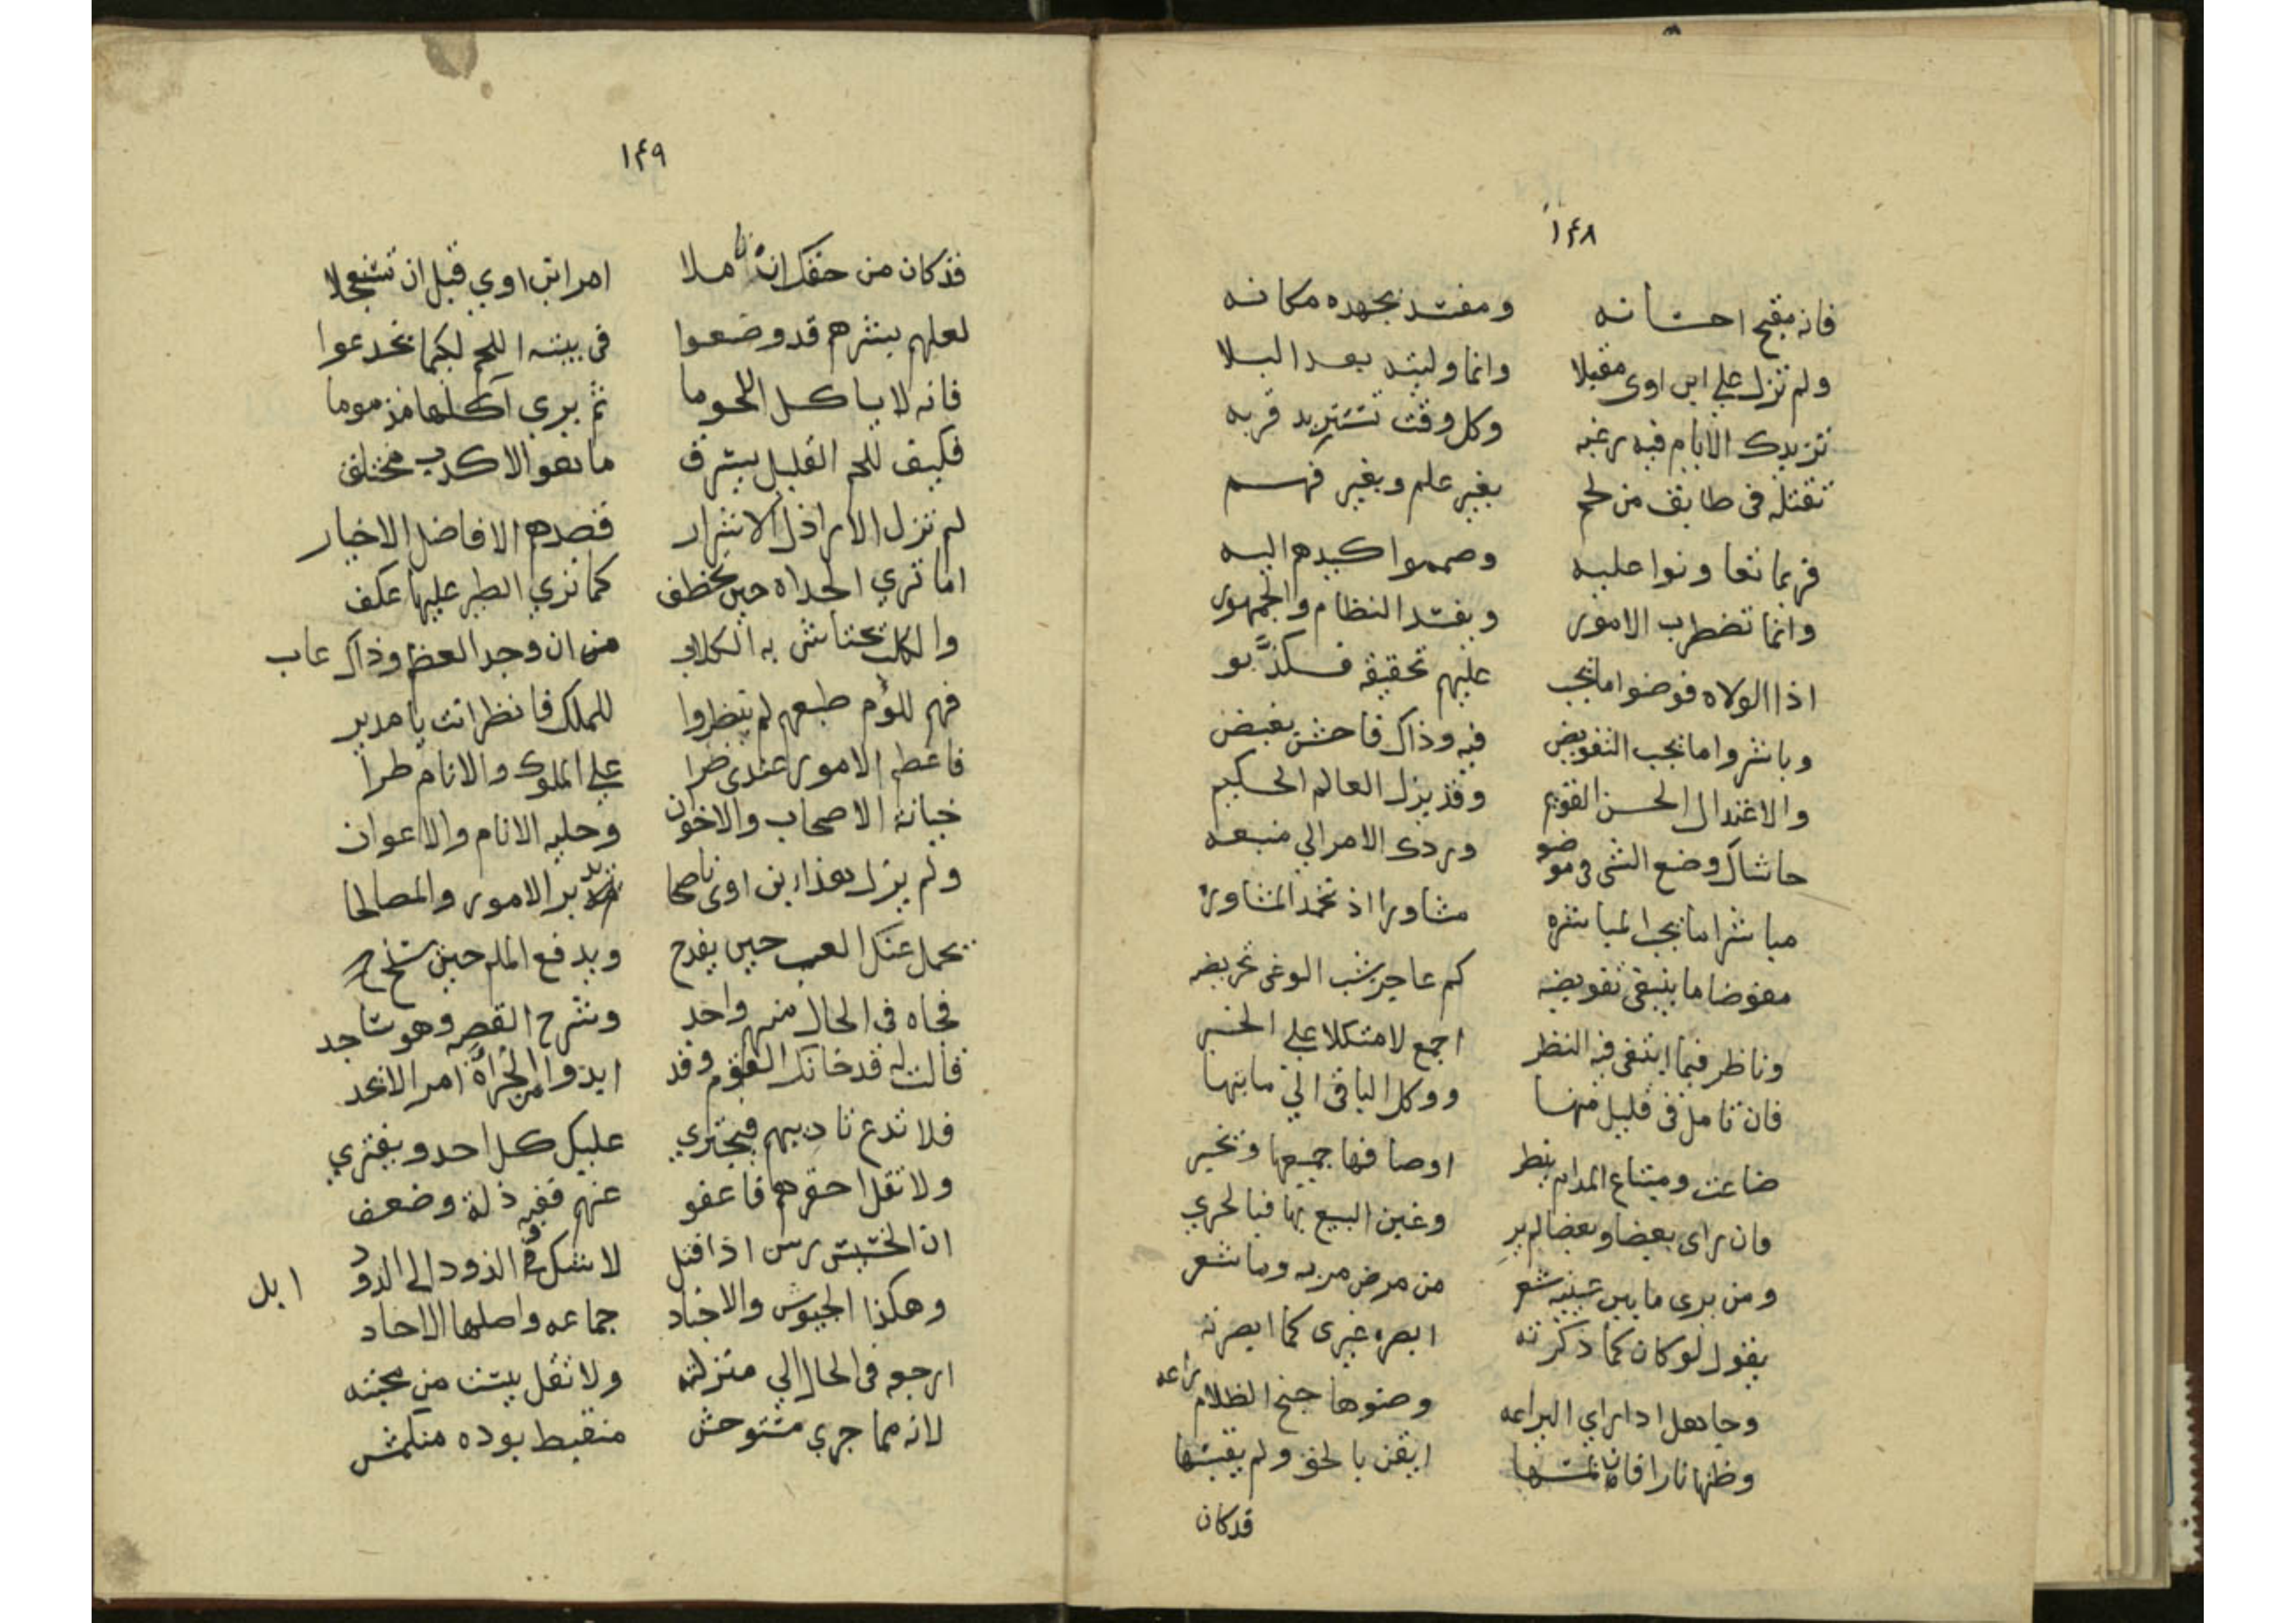 ١٤٨
فانه مقبح احسانه ومفسد بجهده مكانه
ولم تزل علي ابن اوى مقبلا وانما وليته بعد البلا
تزيدك الايام فيه رغبه وكل وقت تستزيد قربه
تقتله في طابق من لحم بغير علم وبغير فهم
فربما تعاونوا عليه وصمموا كيدهم اليه
وانما تضطرب الامور ويفسد النظام والجمهور
اذا الولاه فوضوا ما يجب عليهم تحقيقه فكذبو
وباشروا ما يجب التفويض فيه وذاك فاحش بغيض
والاعتدال الحسن القويم وقد يزل العالم الحكيم
حاشاك وضع الشي في موضو وردك الامر الي منبعه
مباشرا ما يجب المباشره مشاورا اذ تحمد المشاوره
مفوضا ما ينبغي تفويضه كم عاجز يشب الوغى تحريضه
وناظر فيما ابتغى فيه النظر اجمع لا متكلا علي الخبر
فان تامل في قليل منها ووكل الباقي الي ما ينها
ضاعت ومبتاع المدام ينظر اوصافها جميعها وتخبر
وان راى بعضا وبعضا لم ير وغبن البيع بها فيا لحري
ومن يرى ما بين عينيه شعر من مرض مر به وما شعر
يقول لو كان كما ذكرته ابصره غيرى كما ابصرته
وجاهل اذا راي اليراعه وضوها جنح الظلام راعه
وظنها نارا فان لمسها ايقن بالحق ولم يقبسها
قد كان
١٤٩
قد كان من حقك ان تاملا امر ابن اوي قبل ان تستعجلا
لعلهم بشرهم قد وضعوا في بيته اللحم لكيما يخدعوا
فانه لا ياكل اللحوما ثم يرى آكلها مذموما
فكيف للحم القليل يسرق ما هو الا كذب مختلق
لم تزل الاراذل الاشرار قصدهم الافاضل الاخيار
اما تري الحداه حين تخطف كما تري الطير عليها عكف
والكلب تحتاش به الكلاب من ان وجد العظم وذاك عاب
فهم للؤم طبعهم لم ينظروا للملك فانظر انت يا مدبر
فاعظم الامور عندي ضرا علي الملوك والانام طرا
خيانة الاصحاب والاخوان وحليه الانام والاعوان
ولم يزل هذا ابن اوى ناصحا يدبر الامور والمصالحا
يحمل عنك العب حين يفدح ويدفع الملم حين يسنح
فجاه في الحال منهم واحد وشرح القصه وهو ساجد
قالت له قد خانك القوم وقد ابدوا من الجرأة امر الا نحد
فلا تدع تاديبهم فيجتري عليك كل احد ويفتري
ولا تقل احقرهم فاعفو عنهم ففيه ذلة وضعف
ان الخسيس رس اذا فتل لا شك في الذود الى الذود ابل
وهكذا الجيوش والاجناد جماعه واصلها الاحاد
ارجعه في الحال الي منزلته ولا تقل يئست من محبته
لانه مما جري مستوحش منقبط بوده منكمش